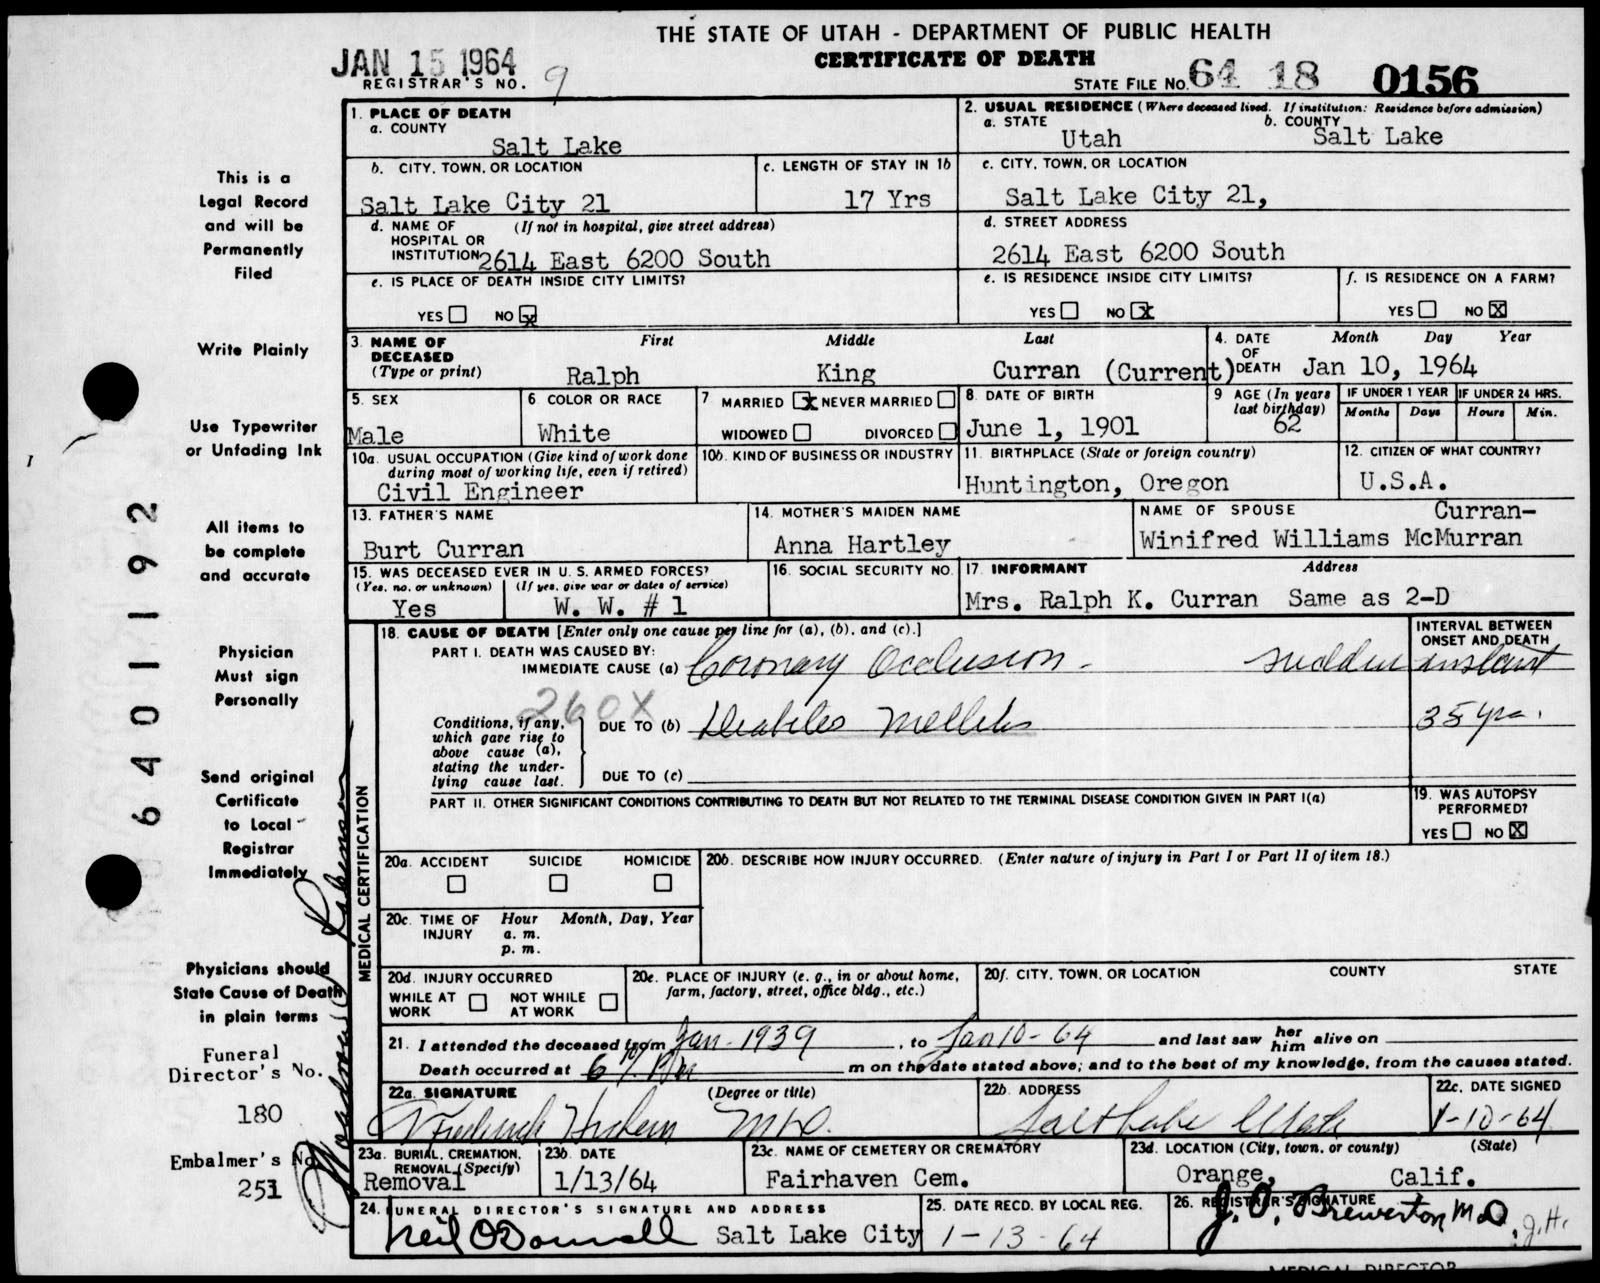 THE STATE OF UTAH - DEPARTMENT OF PUBLIC HEALTH
CERTIFICATE OF DEATH
JAN 15 1964
REGISTRAR'S NO. 9
STATE FILE NO. 64 18 0156
1. PLACE OF DEATH
a. COUNTY
Salt Lake
2. USUAL RESIDENCE (Where deceased lived. If institution: Residence before admission)
a. STATE b. COUNTY
Utah Salt Lake
b. CITY, TOWN, OR LOCATION
Salt Lake City 21
c. LENGTH OF STAY IN 1b
17 Yrs
c. CITY, TOWN, OR LOCATION
Salt Lake City 21,
d. NAME OF (If not in hospital, give street address)
HOSPITAL OR
INSTITUTION 2614 East 6200 South
d. STREET ADDRESS
2614 East 6200 South
e. IS PLACE OF DEATH INSIDE CITY LIMITS?
YES NO X
e. IS RESIDENCE INSIDE CITY LIMITS?
YES NO X
f. IS RESIDENCE ON A FARM?
YES NO X
3. NAME OF DECEASED (Type or print)
First Middle Last
Ralph King Curran (Current)
4. DATE OF DEATH
Month Day Year
Jan 10, 1964
5. SEX
Male
6. COLOR OR RACE
White
7 MARRIED X NEVER MARRIED
WIDOWED DIVORCED
8. DATE OF BIRTH
June 1, 1901
9 AGE (In years last birthday)
62
IF UNDER 1 YEAR
Months Days
IF UNDER 24 HRS.
Hours Min.
10a. USUAL OCCUPATION (Give kind of work done
during most of working life, even if retired)
Civil Engineer
10b. KIND OF BUSINESS OR INDUSTRY
11. BIRTHPLACE (State or foreign country)
Huntington, Oregon
12. CITIZEN OF WHAT COUNTRY?
U.S.A.
13. FATHER'S NAME
Burt Curran
14. MOTHER'S MAIDEN NAME
Anna Hartley
NAME OF SPOUSE Curran-
Winifred Williams McMurran
15. WAS DECEASED EVER IN U. S. ARMED FORCES?
(Yes, no, or unknown) (If yes, give war or dates of service)
Yes W. W. # 1
16. SOCIAL SECURITY NO.
17. INFORMANT Address
Mrs. Ralph K. Curran Same as 2-D
MEDICAL CERTIFICATION
18. CAUSE OF DEATH [Enter only one cause per line for (a), (b), and (c).]
PART I. DEATH WAS CAUSED BY:
IMMEDIATE CAUSE (a) Coronary Occlusion - sudden
INTERVAL BETWEEN
ONSET AND DEATH
instant
260X
Conditions, if any,
which gave rise to
above cause (a),
stating the under-
lying cause last.
DUE TO (b) Diabetes Mellitus
35 yrs.
DUE TO (c)
PART II. OTHER SIGNIFICANT CONDITIONS CONTRIBUTING TO DEATH BUT NOT RELATED TO THE TERMINAL DISEASE CONDITION GIVEN IN PART I(a)
19. WAS AUTOPSY
PERFORMED?
YES NO X
20a. ACCIDENT SUICIDE HOMICIDE
20b. DESCRIBE HOW INJURY OCCURRED. (Enter nature of injury in Part I or Part II of item 18.)
20c. TIME OF INJURY
Hour Month, Day, Year
a. m.
p. m.
20d. INJURY OCCURRED
WHILE AT WORK NOT WHILE AT WORK
20e. PLACE OF INJURY (e. g., in or about home,
farm, factory, street, office bldg., etc.)
20f. CITY, TOWN, OR LOCATION COUNTY STATE
21. I attended the deceased from Jan - 1939, to Jan 10 - 64 and last saw her him alive on
Death occurred at m on the date stated above; and to the best of my knowledge, from the causes stated.
22a. SIGNATURE (Degree or title)
M.D.
22b. ADDRESS
Salt Lake Utah
22c. DATE SIGNED
1-10-64
23a. BURIAL, CREMATION,
REMOVAL (Specify)
Removal
23b. DATE
1/13/64
23c. NAME OF CEMETERY OR CREMATORY
Fairhaven Cem.
23d. LOCATION (City, town, or county) (State)
Orange, Calif.
24. FUNERAL DIRECTOR'S SIGNATURE AND ADDRESS
Neil O'Donnell Salt Lake City
25. DATE RECD. BY LOCAL REG.
1-13-64
26. REGISTRAR'S SIGNATURE
J. O. Brewerton M.D. J.H.
MEDICAL DIRECTOR
This is a
Legal Record
and will be
Permanently
Filed
Write Plainly
Use Typewriter
or Unfading Ink
All items to
be complete
and accurate
Physician
Must sign
Personally
Send original
Certificate
to Local
Registrar
Immediately
Physicians should
State Cause of Death
in plain terms
Funeral
Director's No.
180
Embalmer's No.
251
6401192